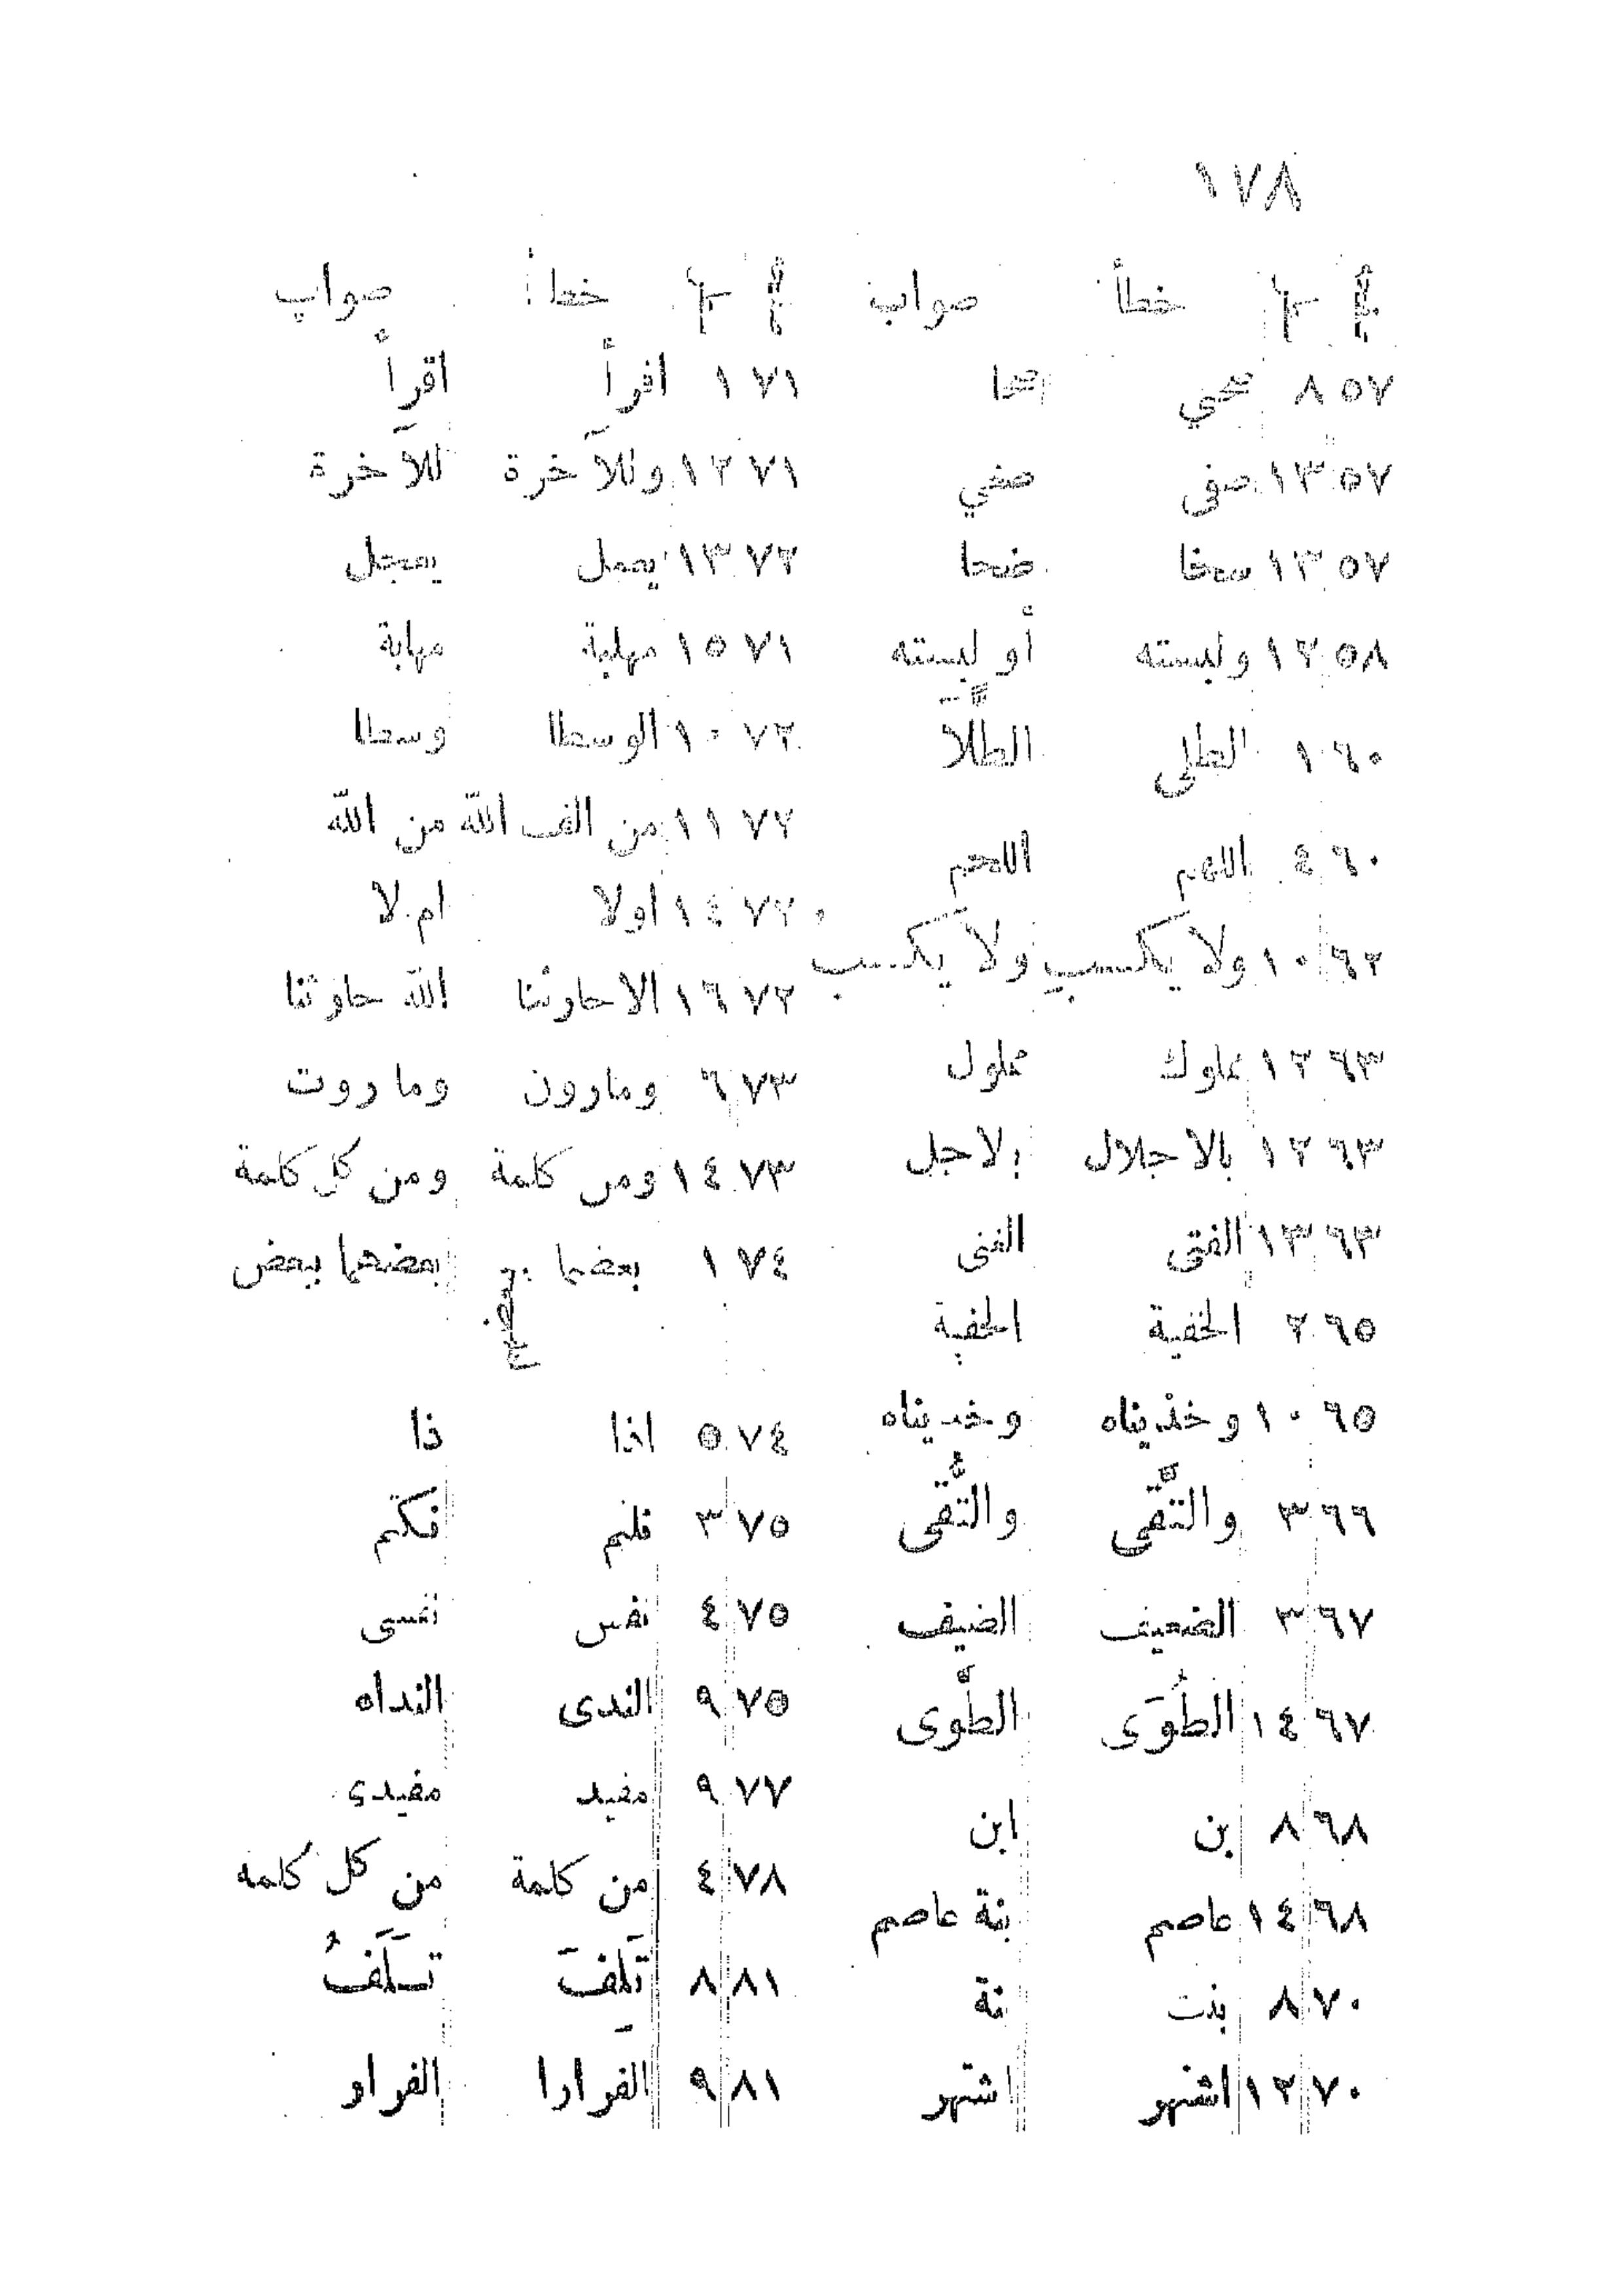 ١٧٨
خطأ صواب
٥٧ ٨ صحي صحا
٥٧ ١٣ صفى صغي
٥٧ ١٣ سخفا ضحا
٥٨ ١٢ ولبسته أو لبسته
٦٠ ١ الطلى الطَّلَا
٦٠ ٤ اللهم اللحم
٦٢ ١٠ ولا يكسب ولا يكسب
٦٣ ١٢ مملوك مملول
٦٣ ١٢ بالاجلال بالاجل
٦٣ ١٣ الفتى الغنى
٦٥ ٢ الخفية
٦٥ ١٠ وخذيناه وخديناه
٦٦ ٣ والتَّقى والتُّقى
٦٧ ٣ الضعيف الضيف
٦٧ ١٤ الطُوَى الطَّوى
٦٨ ٨ بن ابن
٦٨ ١٤ عاصم بنة عاصم
٧٠ ٨ بنت
٧٠ ١٢ اشنهر اشتهر
خطأ صواب
٧١ ١ افرأ اقرأ
٧١ ١٢ وللآخرة للآخرة
٧٢ ١٣ يعمل يعجل
٧١ ١٥ مهلبة مهابة
٧٢ ١٠ الوسطا وسطا
٧٢ ١١ من الف الله من الله
٧٢ ١٤ اولا ام لا
٧٢ ١٦ الاحاوثنا الله حاوثنا
٧٣ ٦ ومارون وماروت
٧٣ ١٤ ومن كلمة ومن كل كلمة
٧٤ ١ بعضما بعضهما ببعض
٧٤ ٥ اذا ذا
٧٥ ٣ فلم فكم
٧٥ ٤ نفس نفسى
٧٥ ٩ الندى النداه
٧٧ ٩ مفيد مفيدى
٧٨ ٤ من كلمة من كل كلمه
٨١ ٨ تَلِفَ تسَلَفُ
٨١ ٩ الفرارا الفرار